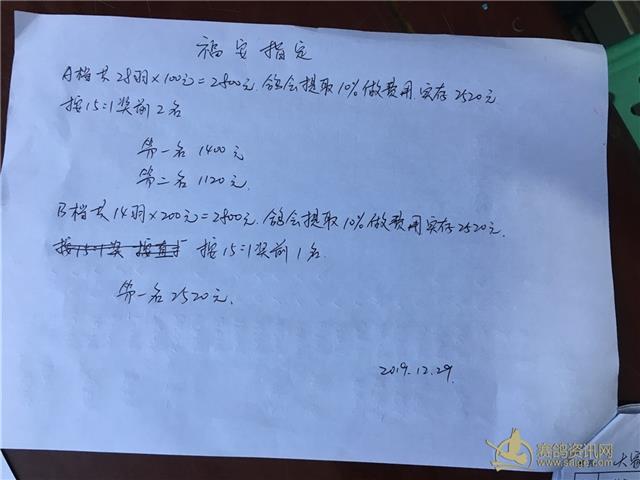 福安指定
A档共28羽×100元=2800元.鸽会提取10%做费用.实存2520元
按15:1奖前2名
第一名 1400元
第二名 1120元.
B档共14羽×200元=2800元.鸽会提取10%做费用实存2520元.
按15:1奖 按直 按15:1奖前1名.
第一名2520元.
2019.12.29.
赛鸽资讯网
www.saige.com
大